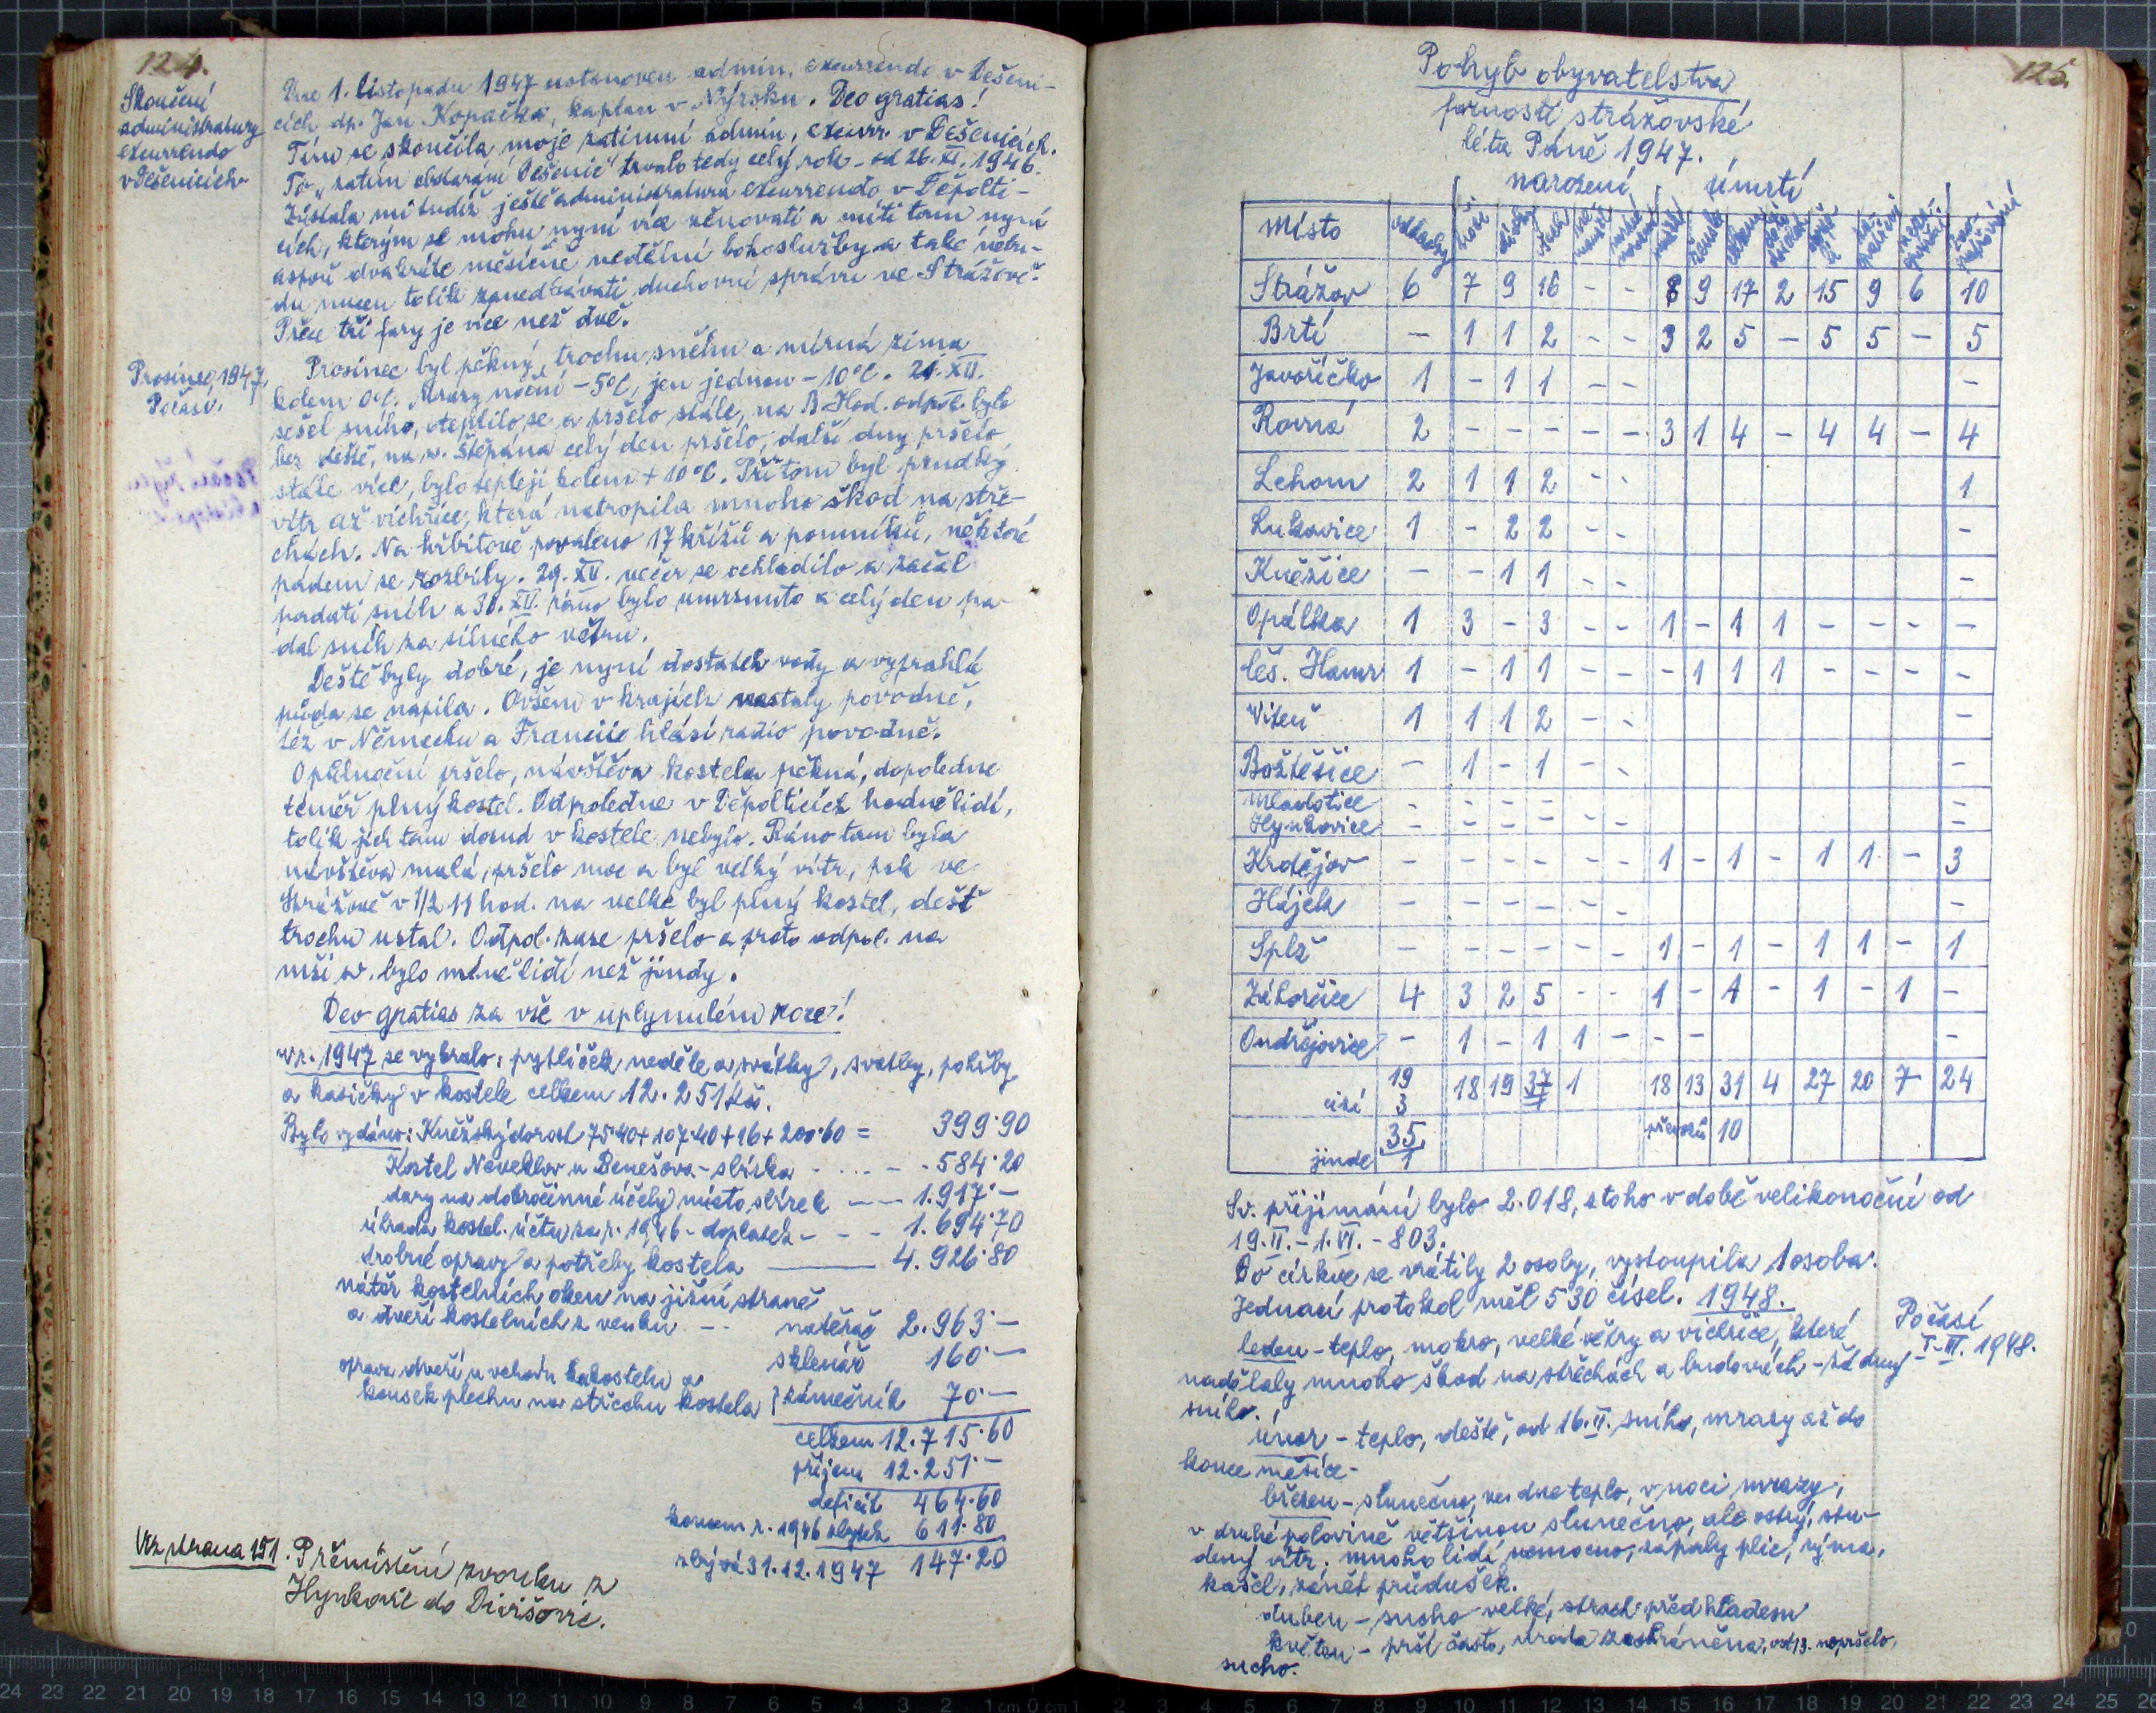 124.
Skončení
administratury
excurrendo
v Dešenicích
Dne 1. listopadu 1947 ustanoven admin. excurrendo v Dešeni-
cích dp. Jan Kopačka, kaplan v Nýrsku. Deo gratias!
Tím se skončila moje zatimní admin. excurr. v Dešenicích.
To „zatim obstarání Dešenic" trvalo tedy celý rok - od 26. XI. 1946.
Zůstala mi tudíž ještě administratura excurrendo v Děpolti-
cích, kterým se mohu nyní více věnovati a míti tam nyní
aspoň dvakráte měsíčně nedělní bohoslužby a také nebu-
du musu tolik zanedbávati duchovní správu ve Strážově.
Přece tři fary je více než dvě.
Prosinec 1947
Počasí.
Prosinec byl pěkný, trochu sněhu a mírná zima
kolem 0°C. Mrazy noční -5°C, jen jednou -10°C. 21. XII.
sešel sníh, oteplilo se a pršelo stále, na B. Hod. odpol. bylo
bez deště, na sv. Štěpána celý den pršelo, další dny pršelo
stále více, bylo tepleji kolem +10°C. Při tom byl prudký
vítr až vichřice, která natropila mnoho škod na stře-
chách. Na hřbitově povaleno 17 křížů a pomníků, některé
pádem se rozbily. 29. XII. večer se ochladilo a začal
padati sníh a 30. XII. ráno bylo umrznuto a celý den pa-
dal sníh za silného větru.
Deště byly dobré, je nyní dostatek vody a vyprahlá
půda se napila. Ovšem v krajích nastaly povodně,
též v Německu a Francii hlásí radio povodně.
O půlnoční pršelo, návštěva kostela pěkná, dopoledne
téměř plný kostel. Odpoledne v Děpolticích hodně lidí,
tolik jich tam dosud v kostele nebylo. Ráno tam byla
návštěva malá, pršelo moc a byl velký vítr, pak ve
Strážově v 1/2 11 hod. na velké byl plný kostel, déšť
trochu ustal. Odpol. zase pršelo a proto odpol. na
mši sv. bylo méně lidí než jindy.
Deo gratias za vše v uplynulém roce!
V r. 1947 se vybralo: pytlíček neděle a svátky, svatby, pohřby
a kasičky v kostele celkem 12.251 Kčs.
Bylo vydáno: Kněžský dorost 75·40+107·40+16+200·60 = 399·90
Kostel Neveklov u Benešova - sbírka - ... - - 584·20
dary na dobročinné účely místo sbírek —— 1.917·—
úhrada kostel. účtu za r. 1946 - doplatek - - - 1.694·70
drobné opravy a potřeby kostela ——— 4.926·80
nátěr kostelních oken na jižní straně
a dveří kostelních z venku -- natěrač 2.963·—
sklenář 160·—
oprava dveří u vchodu do kostela a
kousek plechu na střechu kostela } zámečník 70·—
celkem 12.715·60
příjem 12.251·—
deficit 464·60
koncem r. 1946 zbytek 611·80
zbývá 31.12.1947 147·20
Viz strana 151. Přemístění zvonku z
Hynkovic do Divišovic.
125.
Pohyb obyvatelstva
farnosti strážovské
léta Páně 1947.
narození úmrtí
Místo oddavky hoši dívky
Strážov 6 7 9 16 - - 8 9 17 2 15 9 6 10
Brtí - 1 1 2 - - 3 2 5 - 5 5 - 5
Javoříčko 1 - 1 1 - - -
Rovná 2 - - - - - 3 1 4 - 4 4 - 4
Lehom 2 1 1 2 - - 1
Lukavice 1 - 2 2 - - -
Kněžice - - 1 1 - - -
Opálka 1 3 - 3 - - 1 - 1 1 - - - -
čes. Hamr 1 - 1 1 - - - 1 1 1 - - - -
Viteň 1 1 1 2 - - -
Božtěšice - 1 - 1 - - -
Mladotice - - - - - - -
Hynkovice - - - - - - -
Krdějov - - - - - - 1 - 1 - 1 1 - 3
Hájek - - - - - - -
Splž - - - - - - 1 - 1 - 1 1 - 1
Záhorčice 4 3 2 5 - - 1 - 1 - 1 - 1 -
Ondřejovice - 1 - 1 1 - - - -
19 18 19 37 1 18 13 31 4 27 20 7 24
cizí 3 1
35 převozů 10
jinde 1
Sv. přijímání bylo 2.018, z toho v době velikonoční od
19. II. - 1. VI. - 803.
Do církve se vrátily 2 osoby, vystoupila 1 osoba.
Jednací protokol měl 530 čísel. 1948.
Počasí
I-III. 1948.
leden - teplo, mokro, velké větry a vichřice, které
nadělaly mnoho škod na střechách a budovách - žádný
sníh.
únor - teplo, deště, od 16. II. sníh, mrazy až do
konce měsíce -
březen - slunečno, ve dne teplo, v noci mrazy,
v druhé polovině většinou slunečno, ale ostrý, stu-
dený vítr, mnoho lidí nemocno, zápaly plic, rýma,
kašel, zánět průdušek.
duben - sucho velké, strach před hladem
květen - prší často, úroda zachráněna, od 13. nepršelo,
sucho.